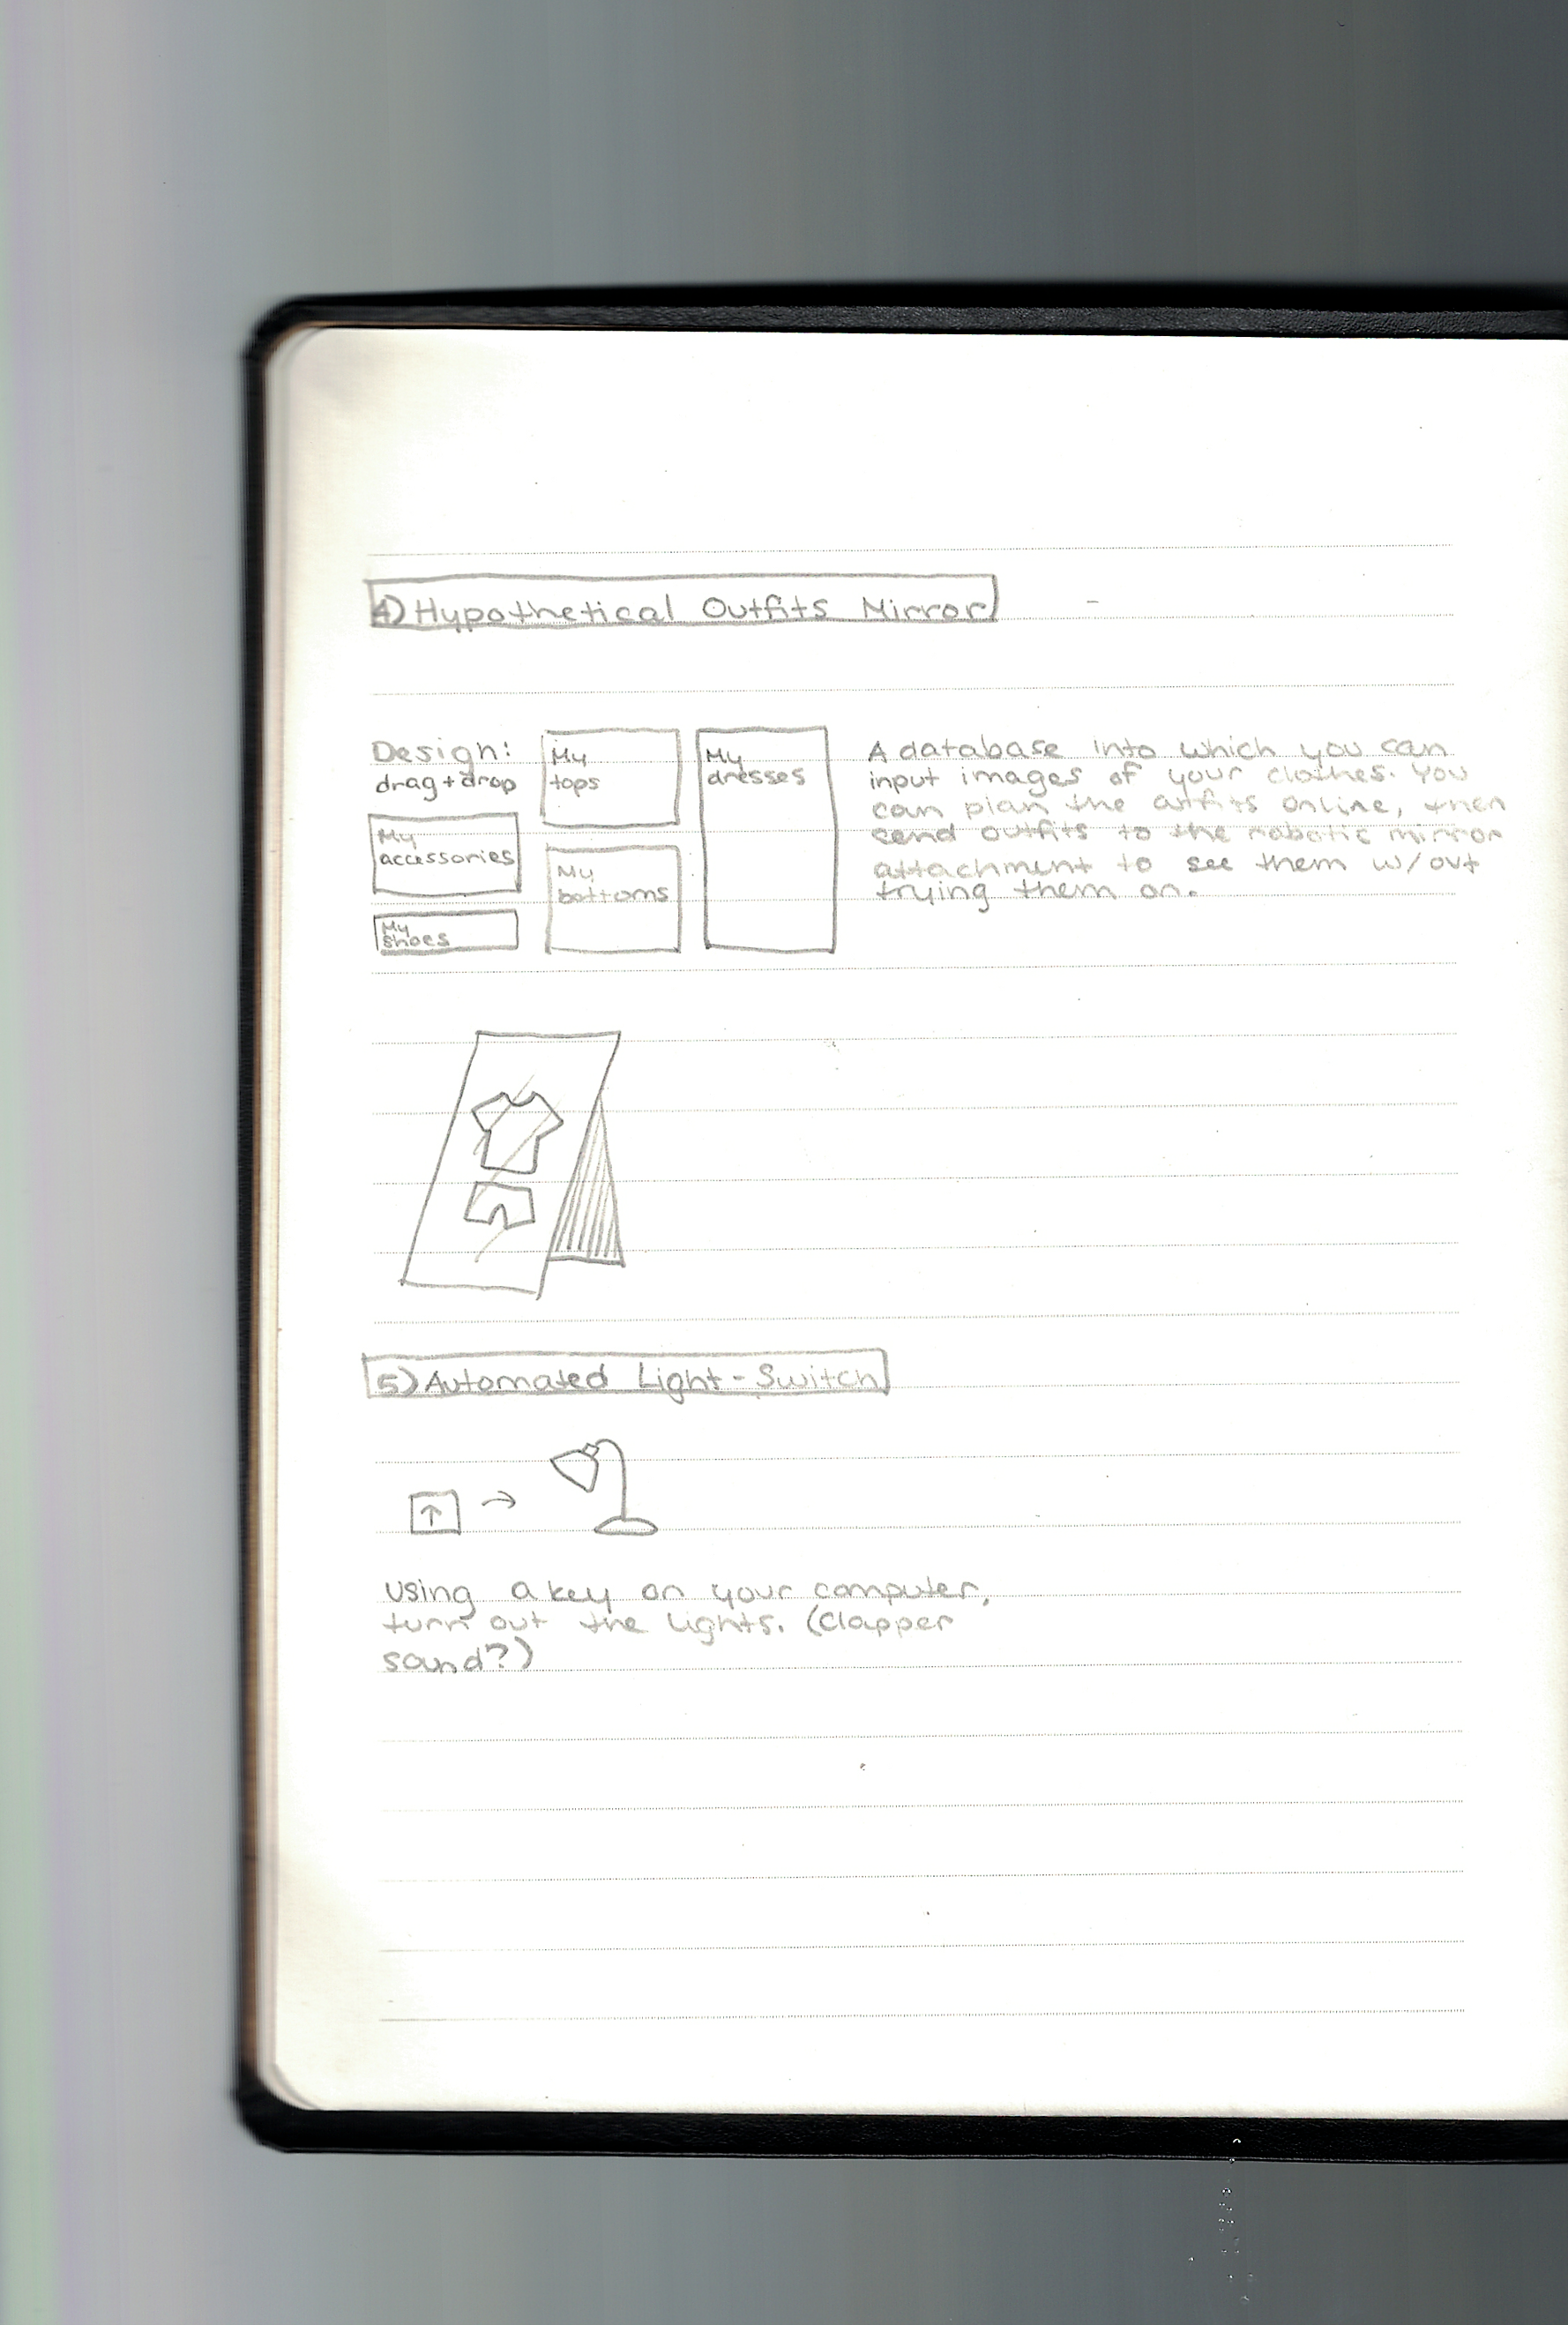 4) Hypothetical Outfits Mirror
Design:
drag + drop
My
accessories
My
shoes
My
tops
My
bottoms
My
dresses
A database into which you can
input images of your clothes. You
can plan the outfits online, then
send outfits to the robotic mirror
attachment to see them w/out
trying them on.
5) Automated Light-Switch
↑ →
Using a key on your computer,
turn out the lights. (Clapper
sound?)